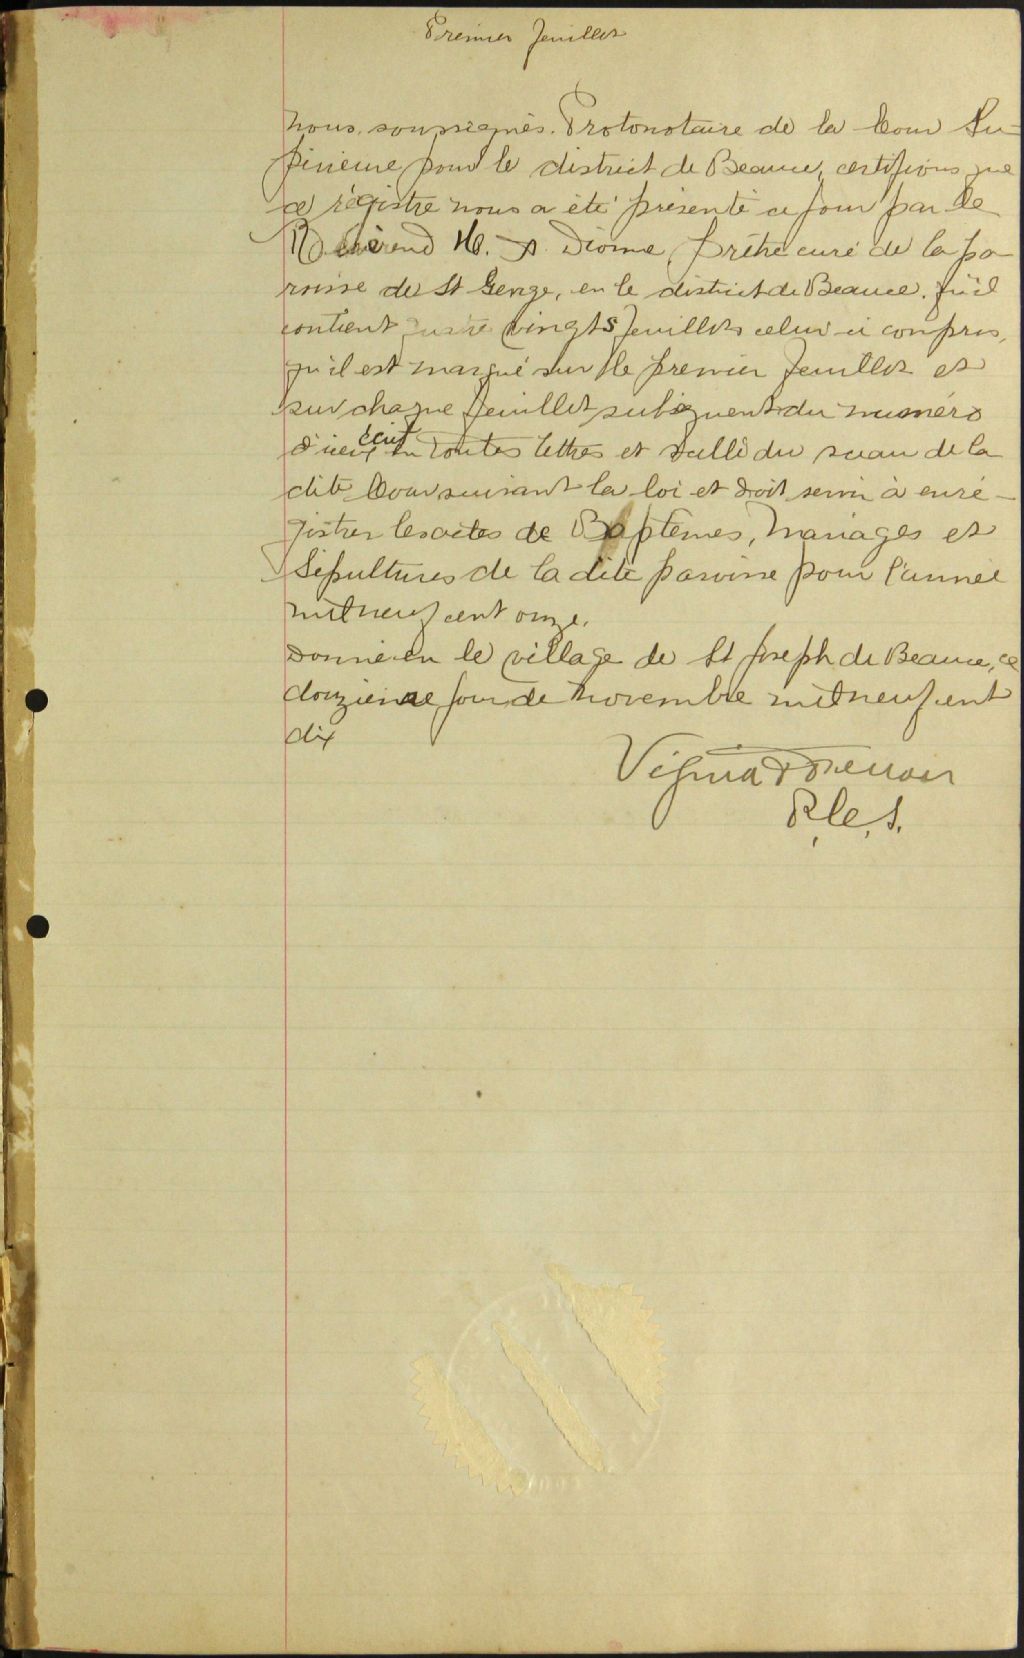 Premier feuillet
Nous, soussignés, Protonotaire de la Cour Su-
périeure pour le district de Beauce, certifions que
ce régistre nous a été présenté ce jour par le
Révérend H. A. Dionne prêtre curé de la pa-
roisse de St George, en le district de Beauce, qu'il
contient quatre vingts feuillets celui ci compris,
qu'il est marqué sur le premier feuillet et
sur chaque feuillet subséquent du numéro
d'icelui écrit en toutes lettres et scellé du sceau de la
dite Cour suivant la loi et doit servir à enré-
gistrer les actes de Baptêmes, Mariages et
Sépultures de la dite paroisse pour l'année
mil neuf cent onze.
Donné en le village de St Joseph de Beauce, ce
douzième jour de Novembre mil neuf cent
dix
P.C.S.